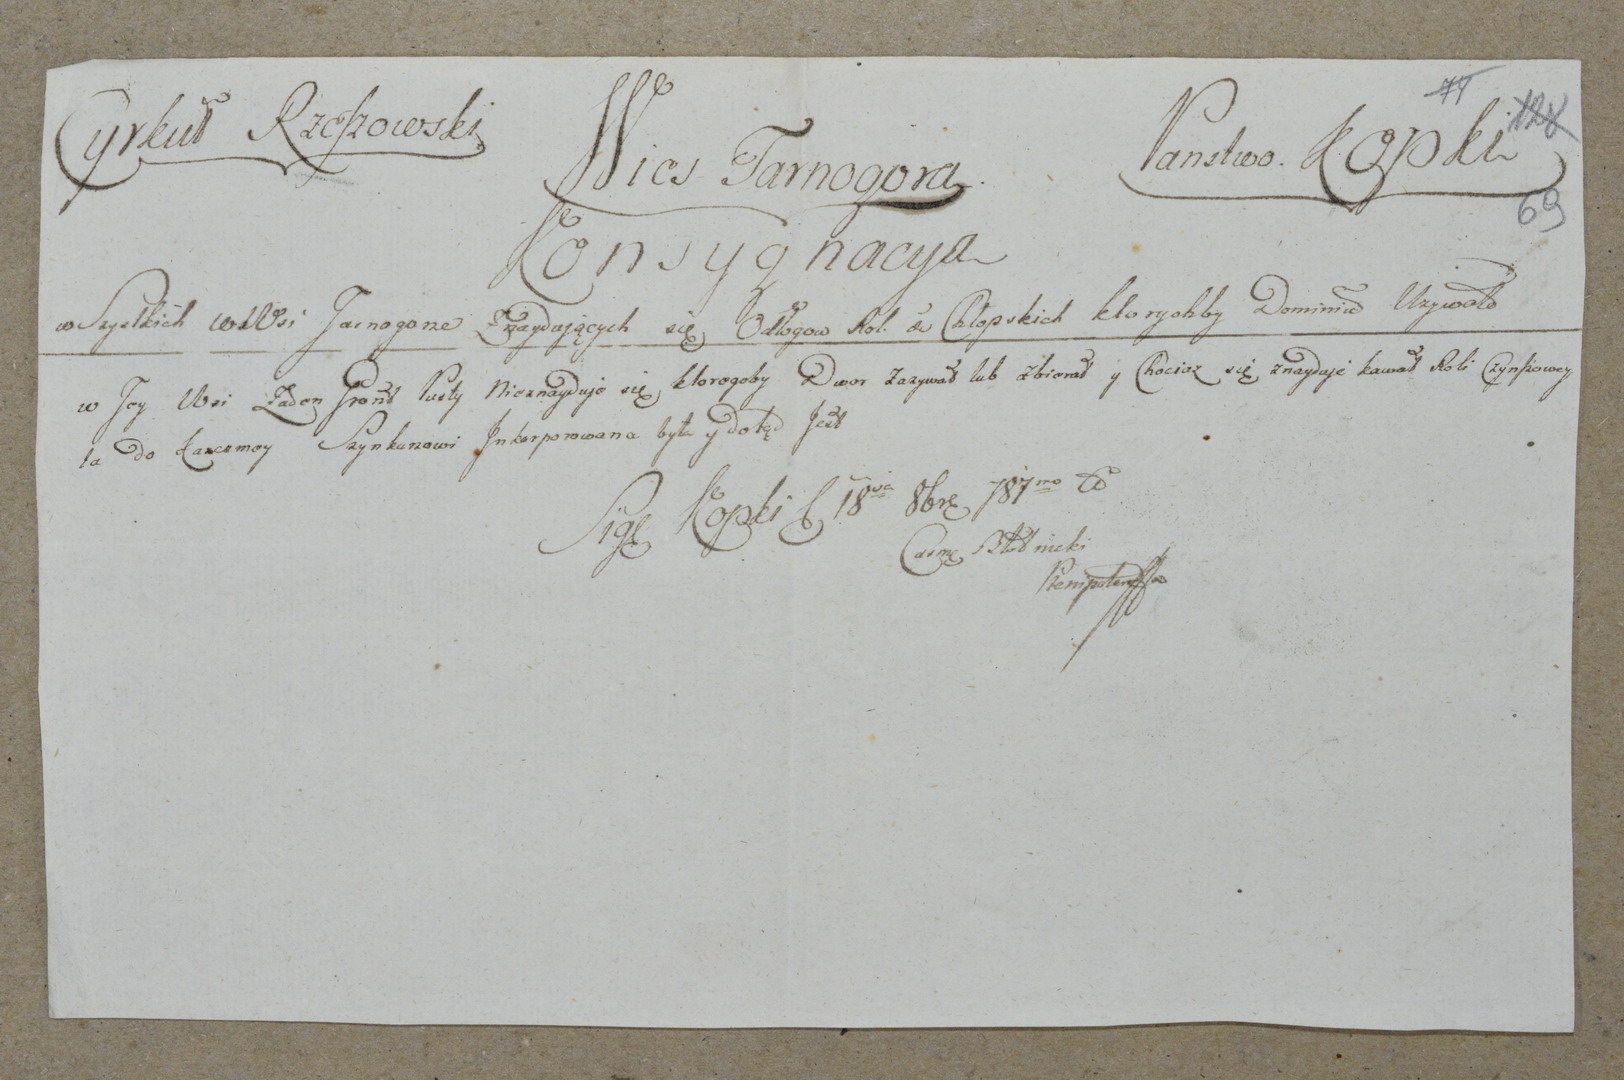 Cyrkuł Rzeszowski
Wies Tarnogora.
Panstwo. Kopki
71
128
69
Konsygnacya
wszystkich we Wsi Tarnogorze Znayduiących się Odłogow Rol. Chłopskich ktorychby Dominiu Uzywało
w Tey Wsi Żaden Gront Pusty Nieznayduje się, ktoregoby Dwor Zazywał lub zbierał y Chociaz się znayduje kawał Roli Czynszowey
ta do Karczmy Szynkarzowi Inkorporowana była y dotąd Jest
Sigł Kopki d 18 8brę 787mo